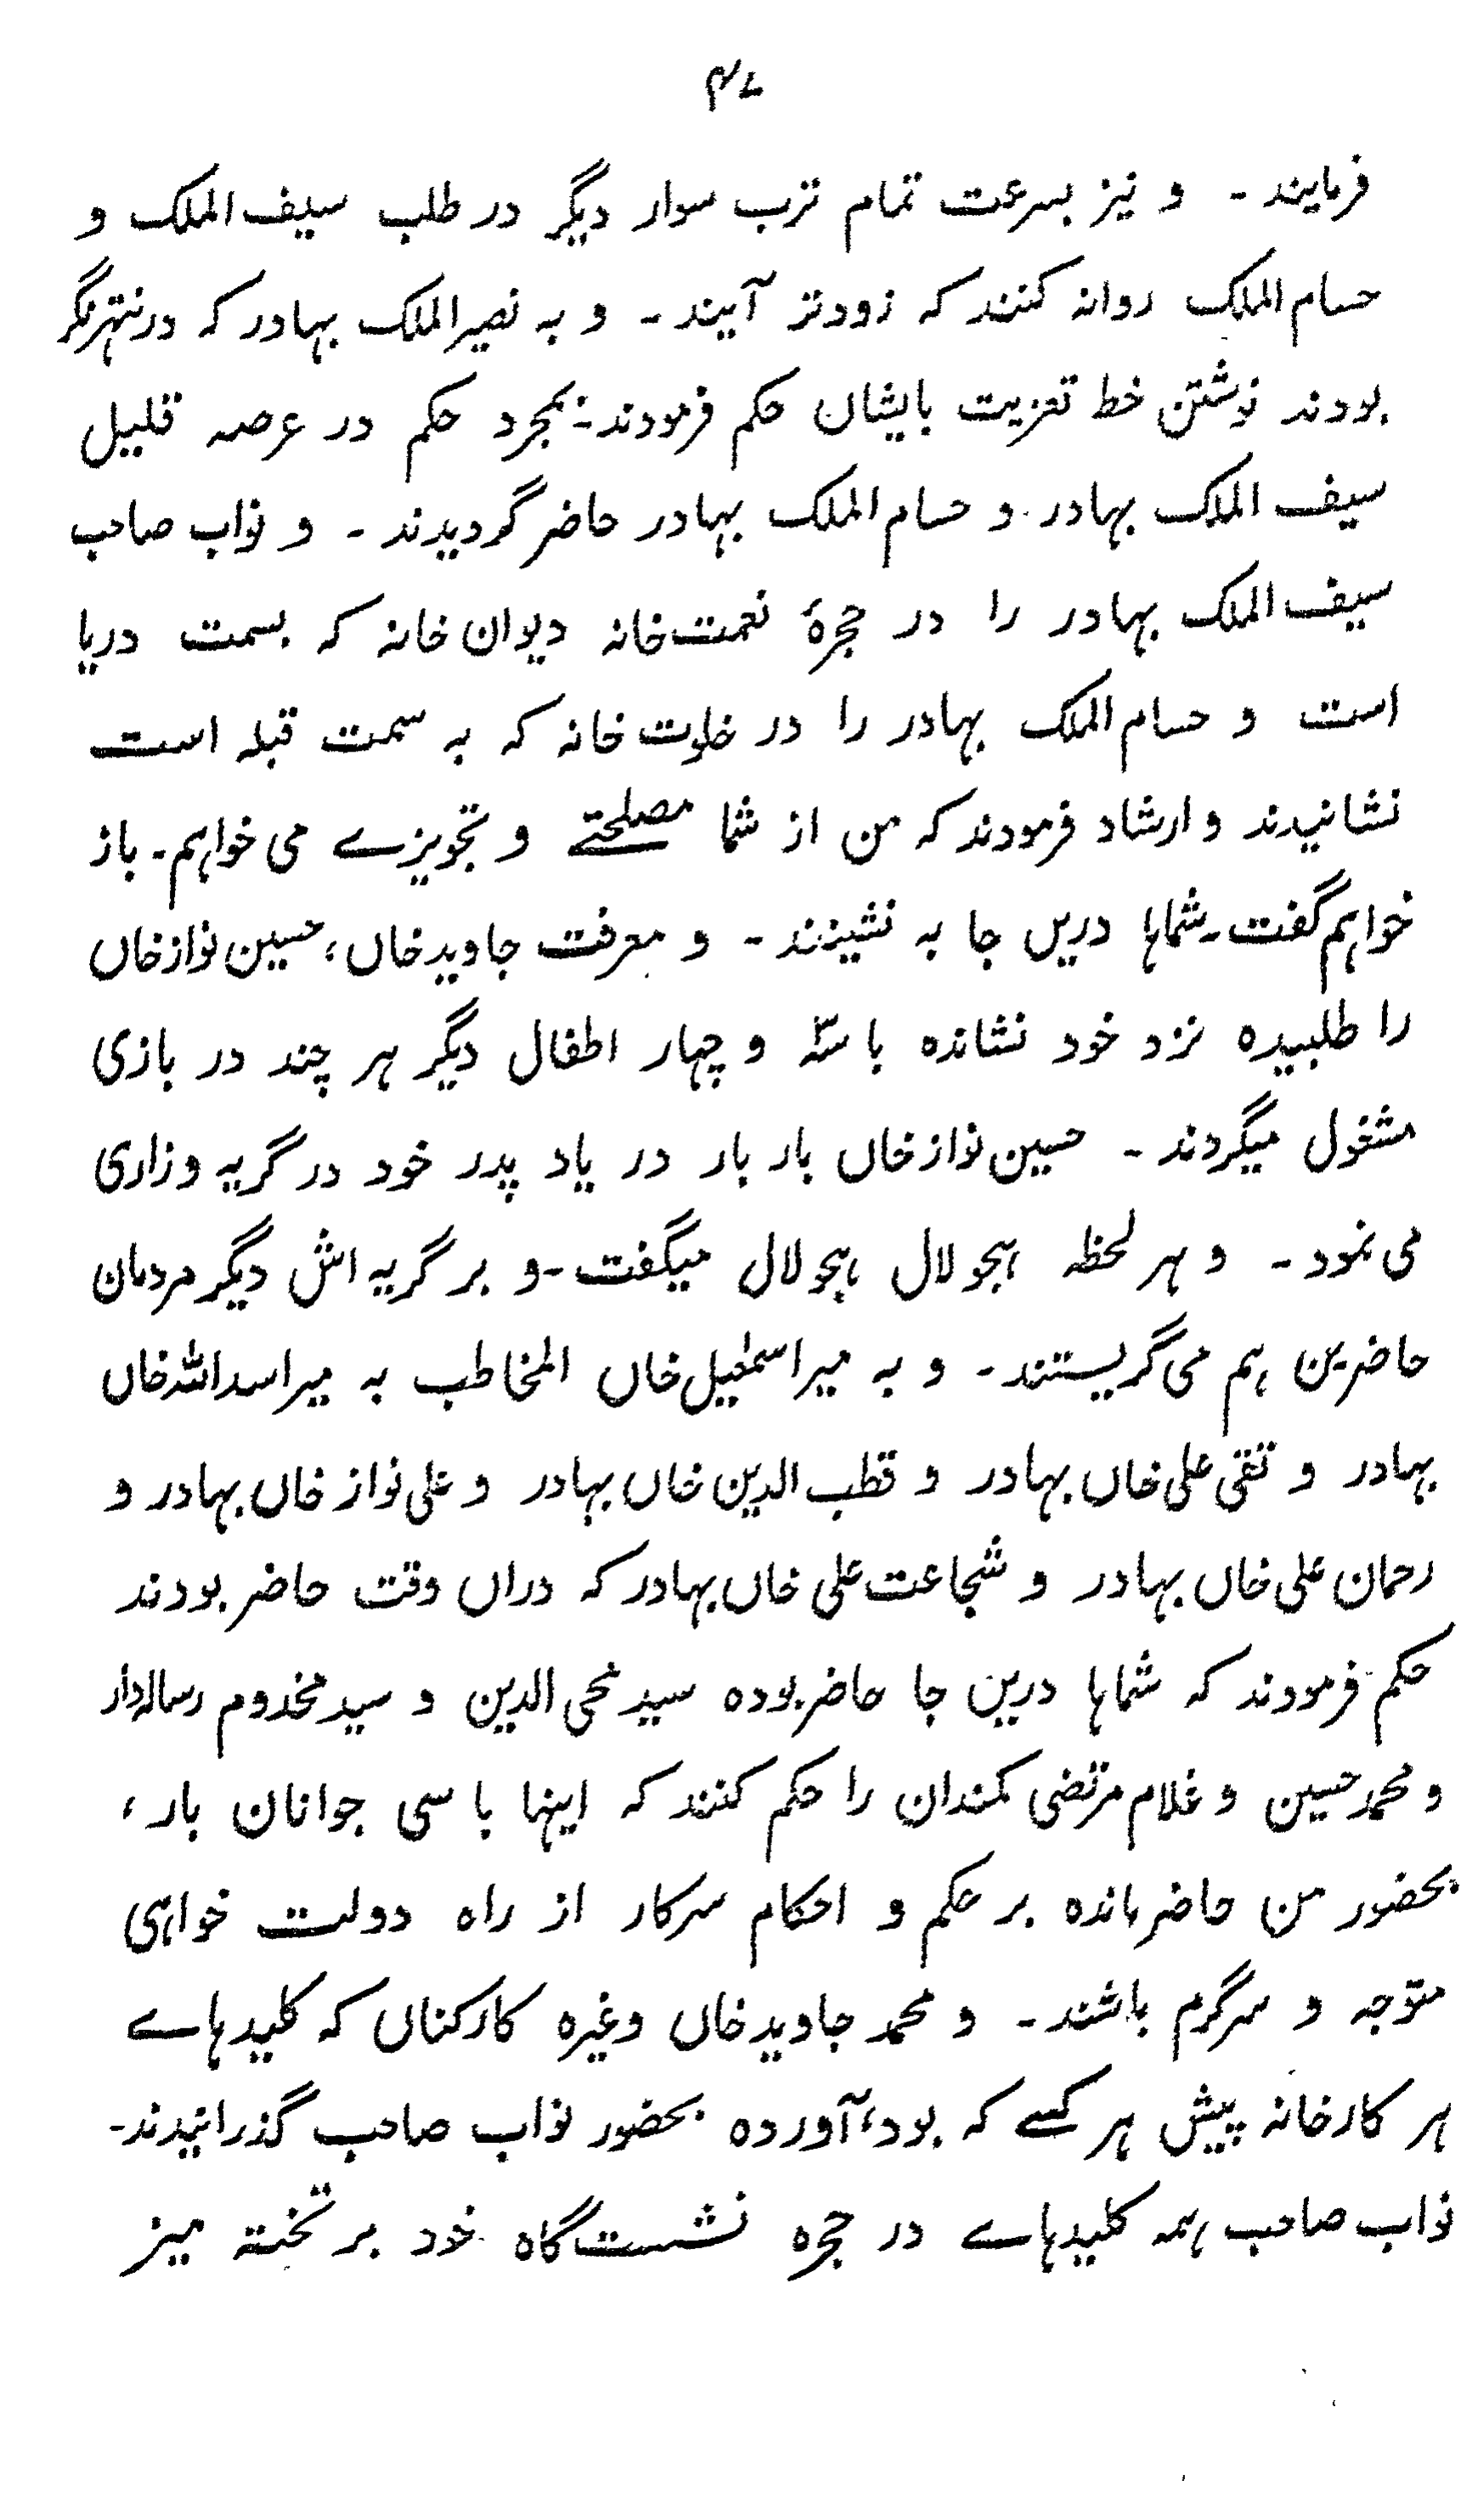 ۴۷
فرمایند ۔ و نیز بسرعت تمام ترب سوار دیگر در طلب سیف الملک و
حسام الملک روانہ کنند کہ زودتر آیند ۔ و بہ نصیر الملک بہادر کہ در نتہرنگر
بودند نوشتن خط تعزیت بایشاں حکم فرمودند ۔ بمجرد حکم در عرصہ قلیل
سیف الملک بہادر و حسام الملک بہادر حاضر گردیدند ۔ و نواب صاحب
سیف الملک بہادر را در حجرۂ نعمت خانہ دیوان خانہ کہ بسمت دریا
است و حسام الملک بہادر را در خلوت خانہ کہ بہ سمت قبلہ است
نشانیدند و ارشاد فرمودند کہ من از شما مصلحتے و تجویزے می خواہم ۔ باز
خواہم گفت ۔ شماہا دریں جا بہ نشینند ۔ و معرفت جاوید خاں، حسین نواز خاں
را طلبیدہ نزد خود نشاندہ با سّہ و چہار اطفال دیگر ہر چند در بازی
مشغول میگردند ۔ حسین نواز خاں بار بار در یاد پدر خود در گریہ و زاری
می نمود ۔ و ہر لحظہ ہجو لال ہجو لال میگفت ۔ و بر گریہ اش دیگر مردمان
حاضرین ہم می گریستند ۔ و بہ میر اسمٰعیل خاں المخاطب بہ میر اسد اللہ خاں
بہادر و تقی علی خاں بہادر و قطب الدین خاں بہادر و علی نواز خاں بہادر و
رحمان علی خاں بہادر و شجاعت علی خاں بہادر کہ دراں وقت حاضر بودند
حکم فرمودند کہ شماہا درین جا حاضر بودہ سید محی الدین و سید مخدوم رسالدار
و محمد حسین و غلام مرتضی کمندان را حکم کنند کہ اینہا با سی جوانان بار،
بحضور من حاضر ماندہ بر حکم و احکام سرکار از راہ دولت خواہی
متوجہ و سرگرم باشند ۔ و محمد جاوید خاں وغیرہ کارکناں کہ کلیدہاے
ہر کارخانہ پیش ہر کسے کہ بود، آوردہ بحضور نواب صاحب گذرانیدند ۔
نواب صاحب ہمہ کلیدہاے در حجرہ نشست گاہ خود بر تختہ میز